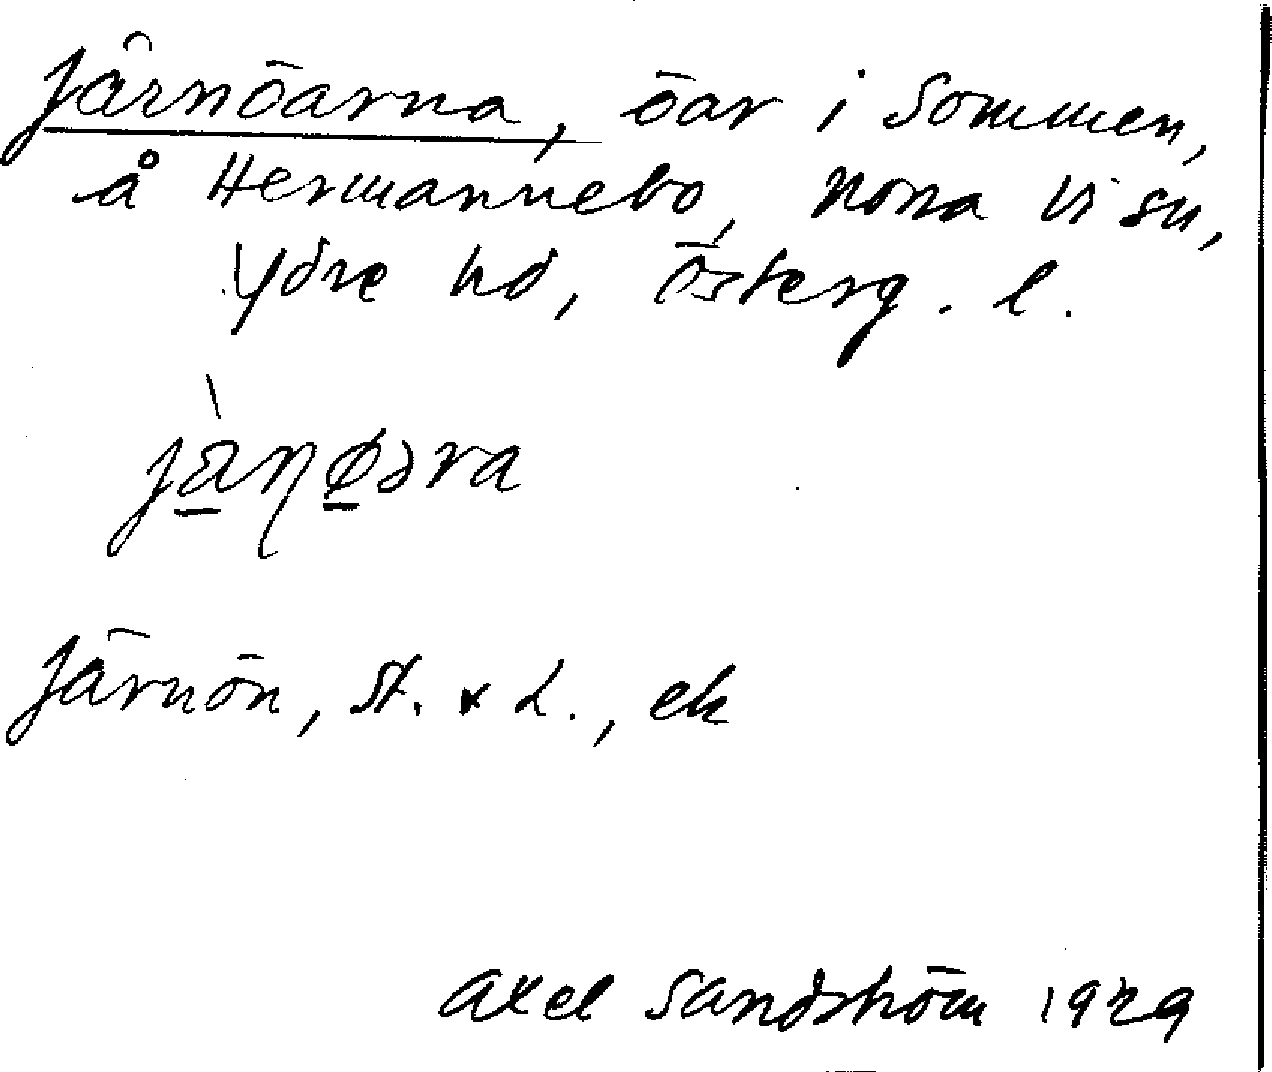 Järnöarna, öar i Sommen,
å Hermannebo, Norra Vi sn,
Ydre hd, Österg. l.
jàn̠øəra
Järnön, St. & L., ek
Axel Sandström 1929